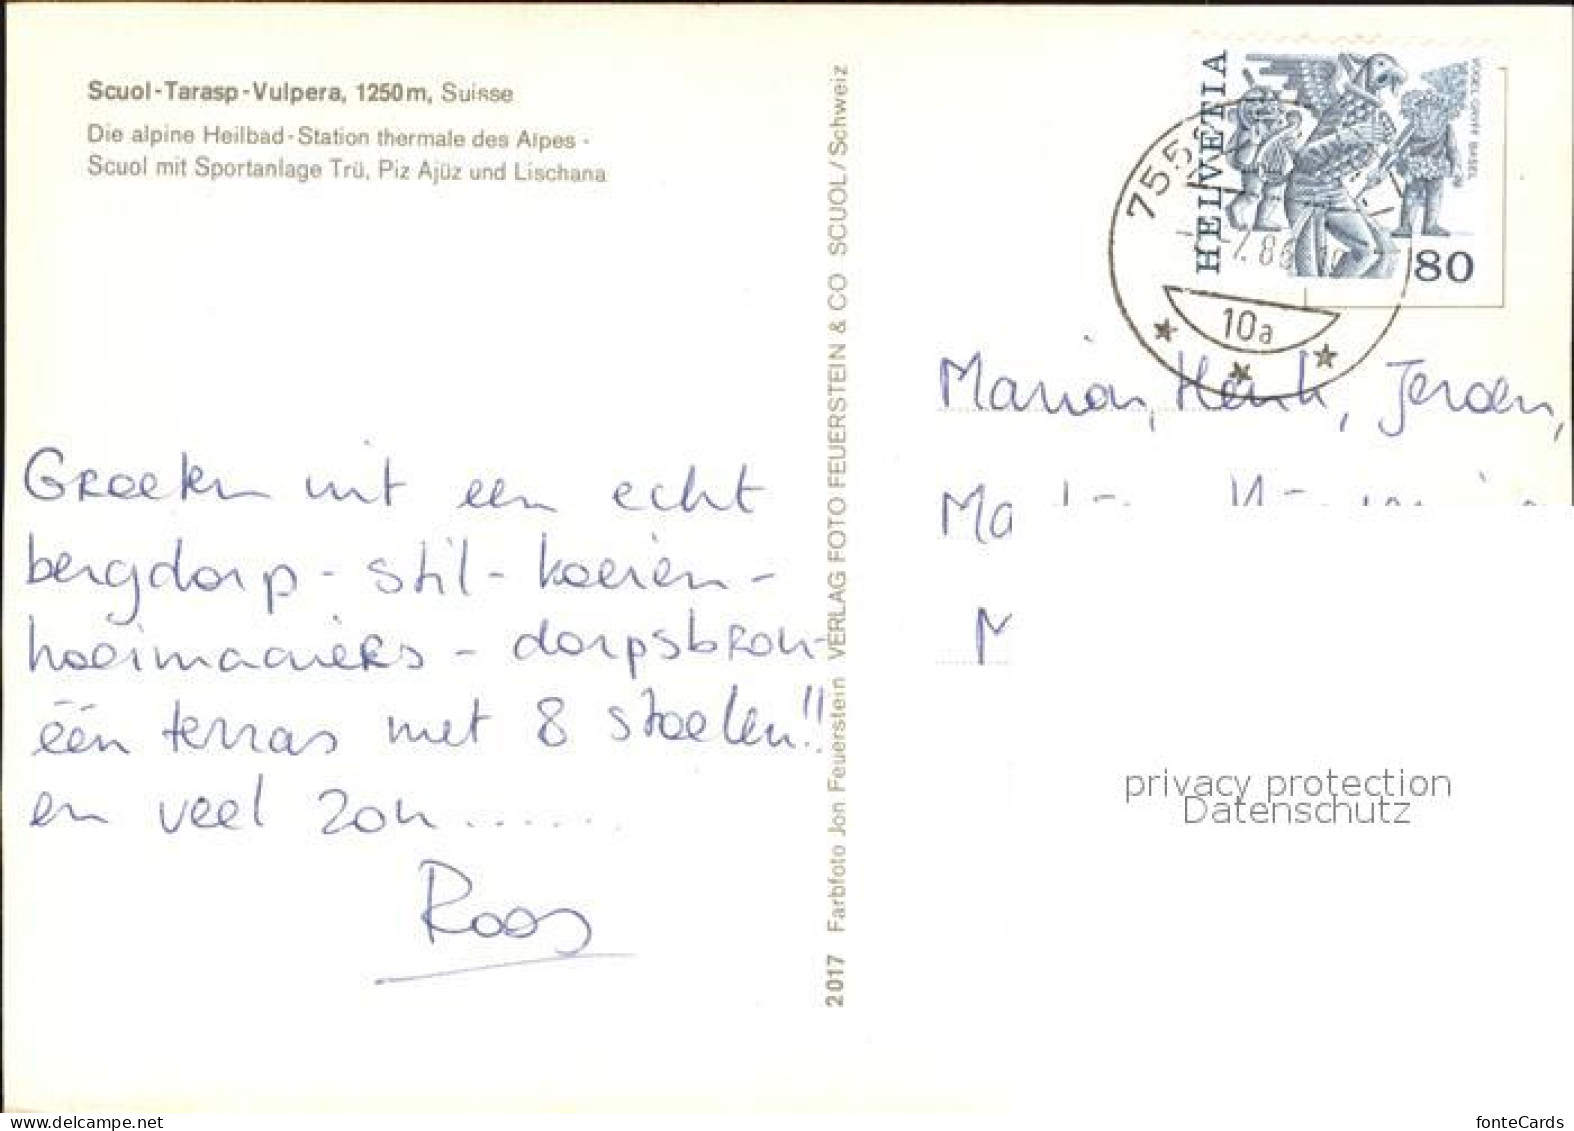 Scuol-Tarasp-Vulpera, 1250m, Suisse
Die alpine Heilbad-Station thermale des Alpes -
Scuol mit Sportanlage Trü, Piz Ajüz und Lischana
Groeten uit een echt
bergdorp - stil - koeien -
hooimaaiers - dorpsbron -
één terras met 8 stoelen!!
en veel zon......
Roos
2017 Farbfoto Jon Feuerstein VERLAG FOTO FEUERSTEIN & CO SCUOL/Schweiz
HELVETIA
VOGEL GRYFF BASEL
80
7.86
10a
Marion, Henk, Jeroen,
privacy protection
Datenschutz
fonteCards